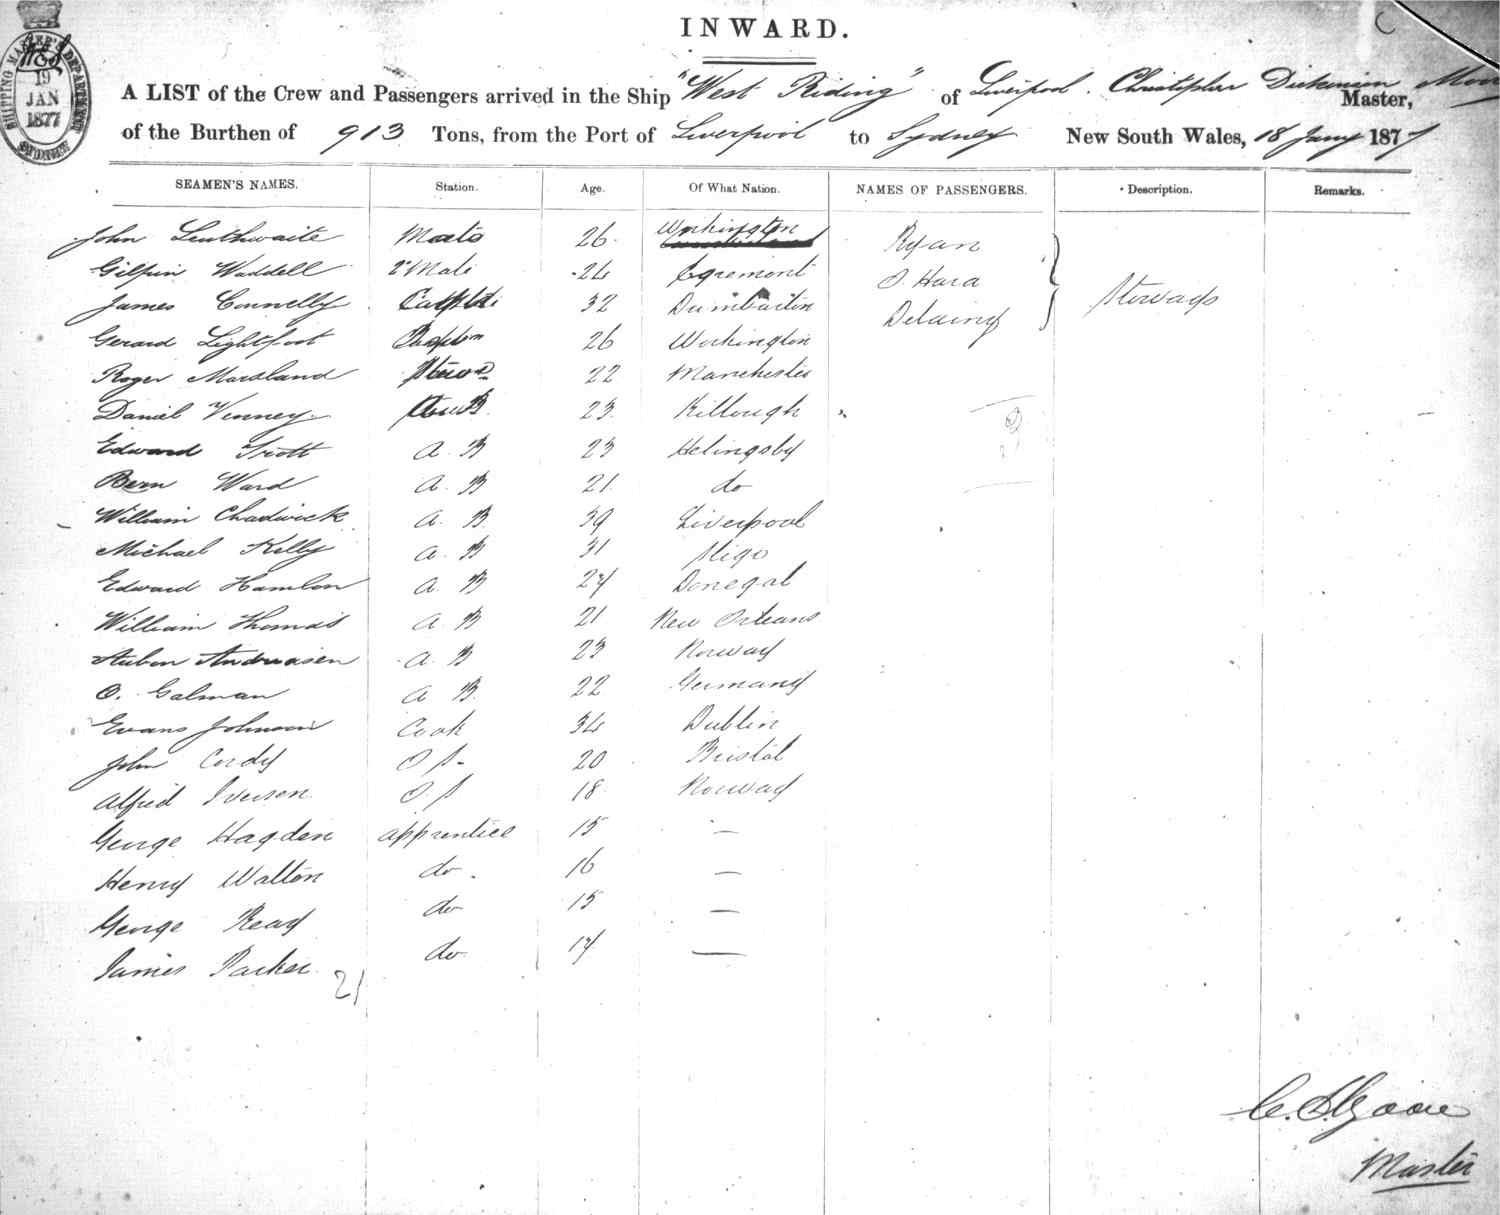 SHIPPING MASTER'S DEPARTMENT
19
JAN
1877
SYDNEY
INWARD.
A LIST of the Crew and Passengers arrived in the Ship "West Riding" of Liverpool. Christopher Dickinson Master,
of the Burthen of 913 Tons, from the Port of Liverpool to Sydney New South Wales, 18 Jany 1877
SEAMEN'S NAMES. Station. Age. Of What Nation. NAMES OF PASSENGERS. Description. Remarks.
John Leuthwaite Mate 26 Workington Ryan
Gilpin Waddell 2d Mate 24 Egremont O'Hara Stoways
James Connelly 32 Dumbarton Delainy
Gerard Lightfoot 26 Workington
Roger Marsland 22 Manchester
Daniel Venney 23 Killough
Edward Trott A.B 23 Helingsby
Bern Ward A.B 21 do
William Chadwick A.B. 39 Liverpool
Michael Kelly A.B 31 Sligo
Edward Hamlon A.B 24 Donegal
William Thomas A.B 21 New Orleans
Andreasen A.B 23 Norway
O. Galman A B. 22 Germany
Evans Johnson Cook 34 Dublin
John Cordy O S 20 Bristol
Alfred Iverson O.S 18 Norway
George Hagden apprentice 15 —
Henry Walton do. 16 —
George Ready do 15 —
James Parker do 17 —
21
Master